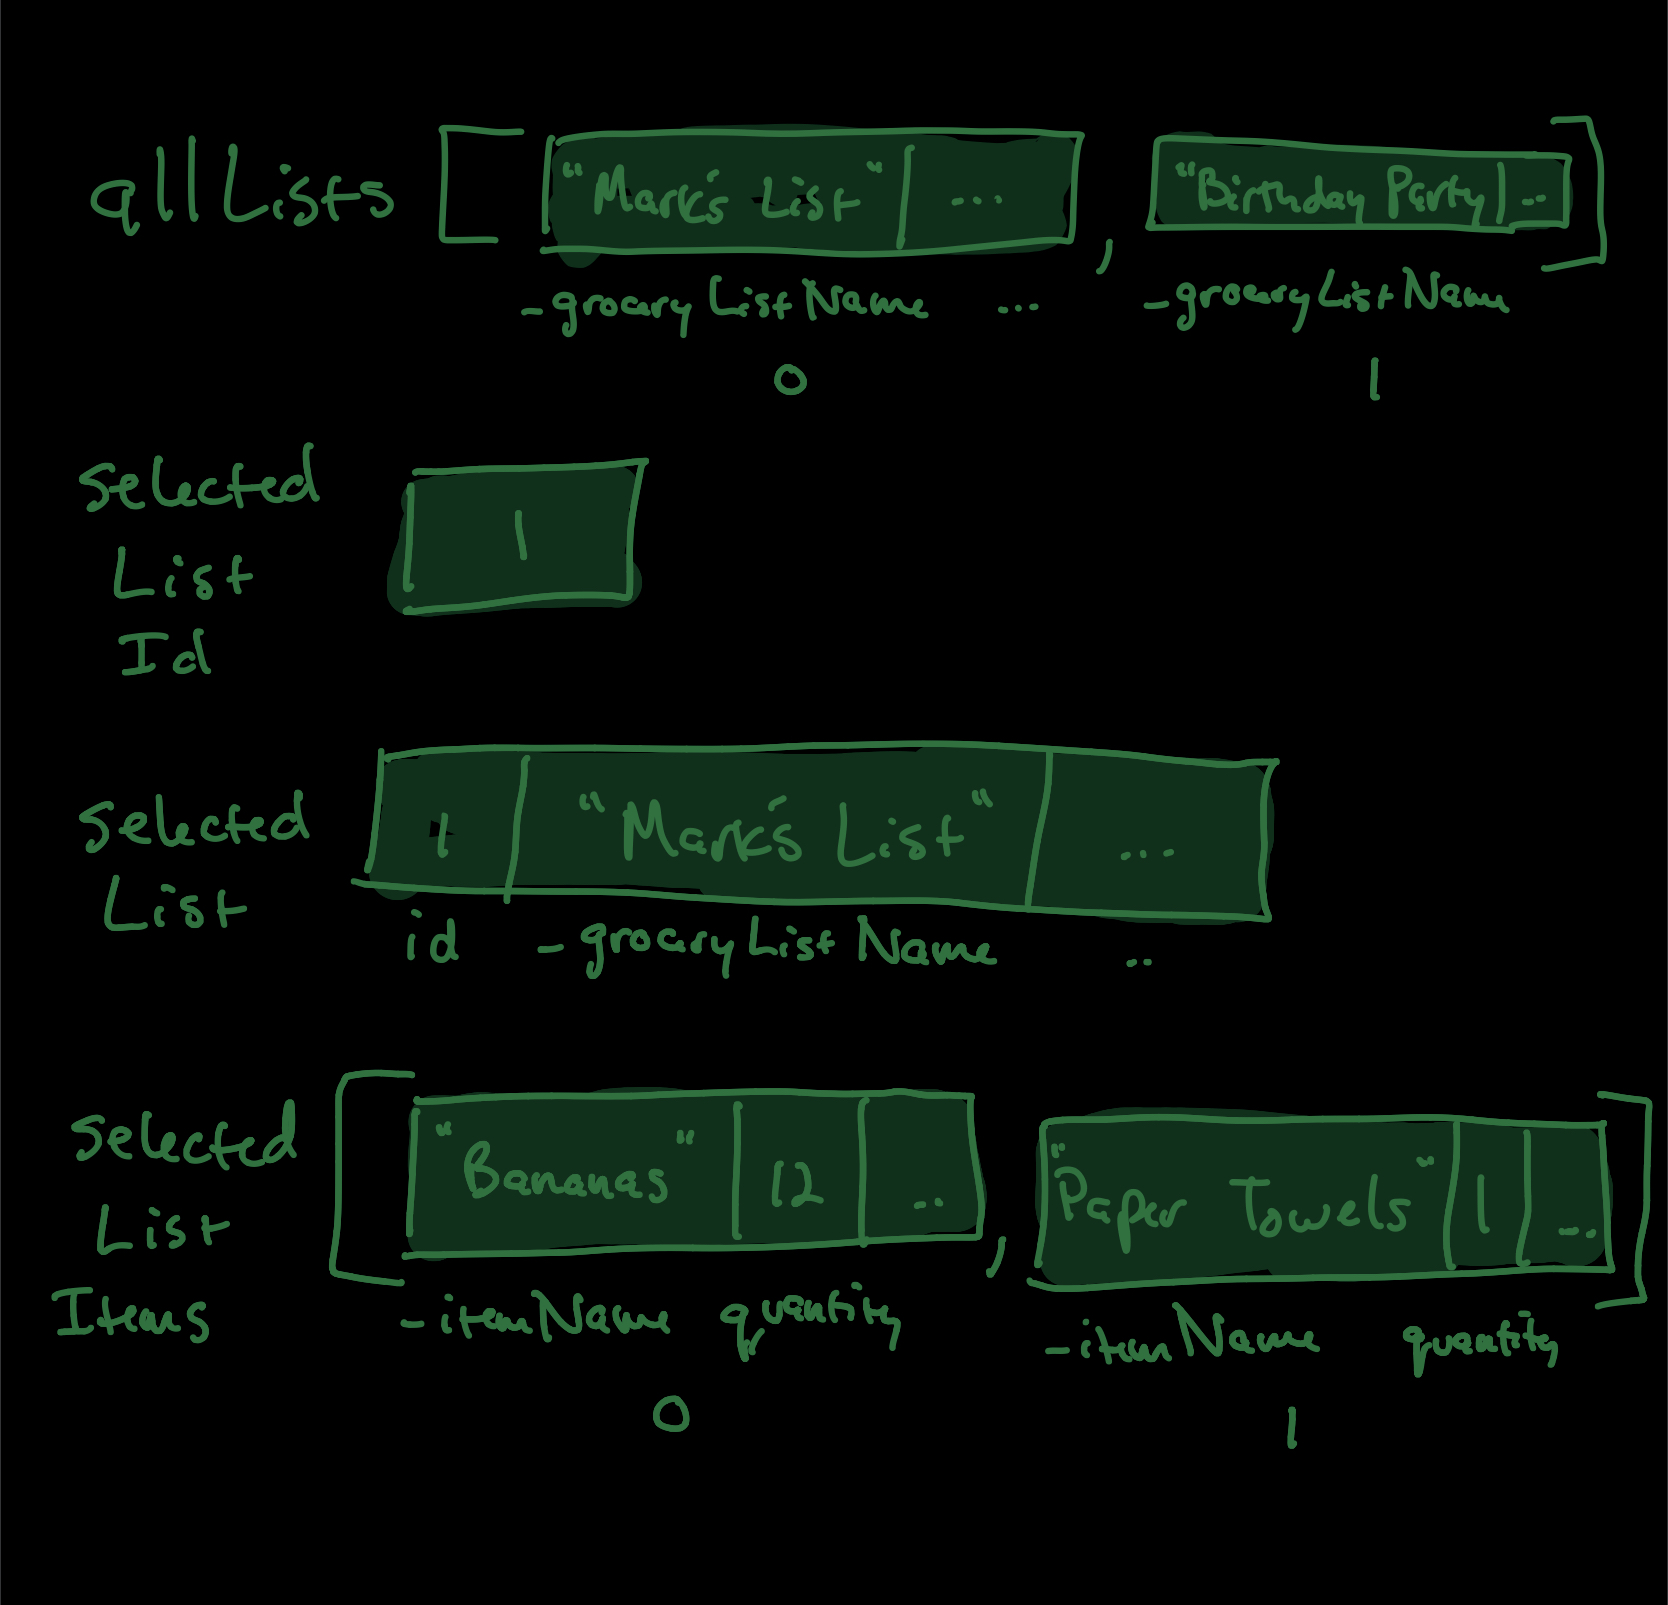 allLists [ "Mark's List" | ... , "Birthday Party | ... ]
-groceryListName ... -groceryListName
0 1
Selected
List
Id
1
Selected
List
1 "Mark's List" ...
id -groceryListName ..
Selected
List
Items
[ "Bananas" 12 .. , "Paper Towels" 1 ... ]
-itemName quantity -itemName quantity
0 1